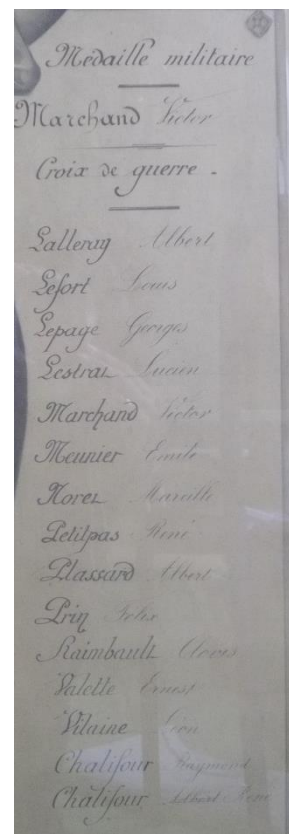 Médaille militaire
Marchand Victor
Croix de guerre -
Lalleray Albert
Lefort Louis
Lepage Georges
Lestral Lucien
Marchand Victor
Meunier Emile
Morel
Petitpas René
Plassard Albert
Prin Félix
Raimbault Clovis
Valette Ernest
Vilaine Léon
Chalifour Raymond
Châlifour Albert René